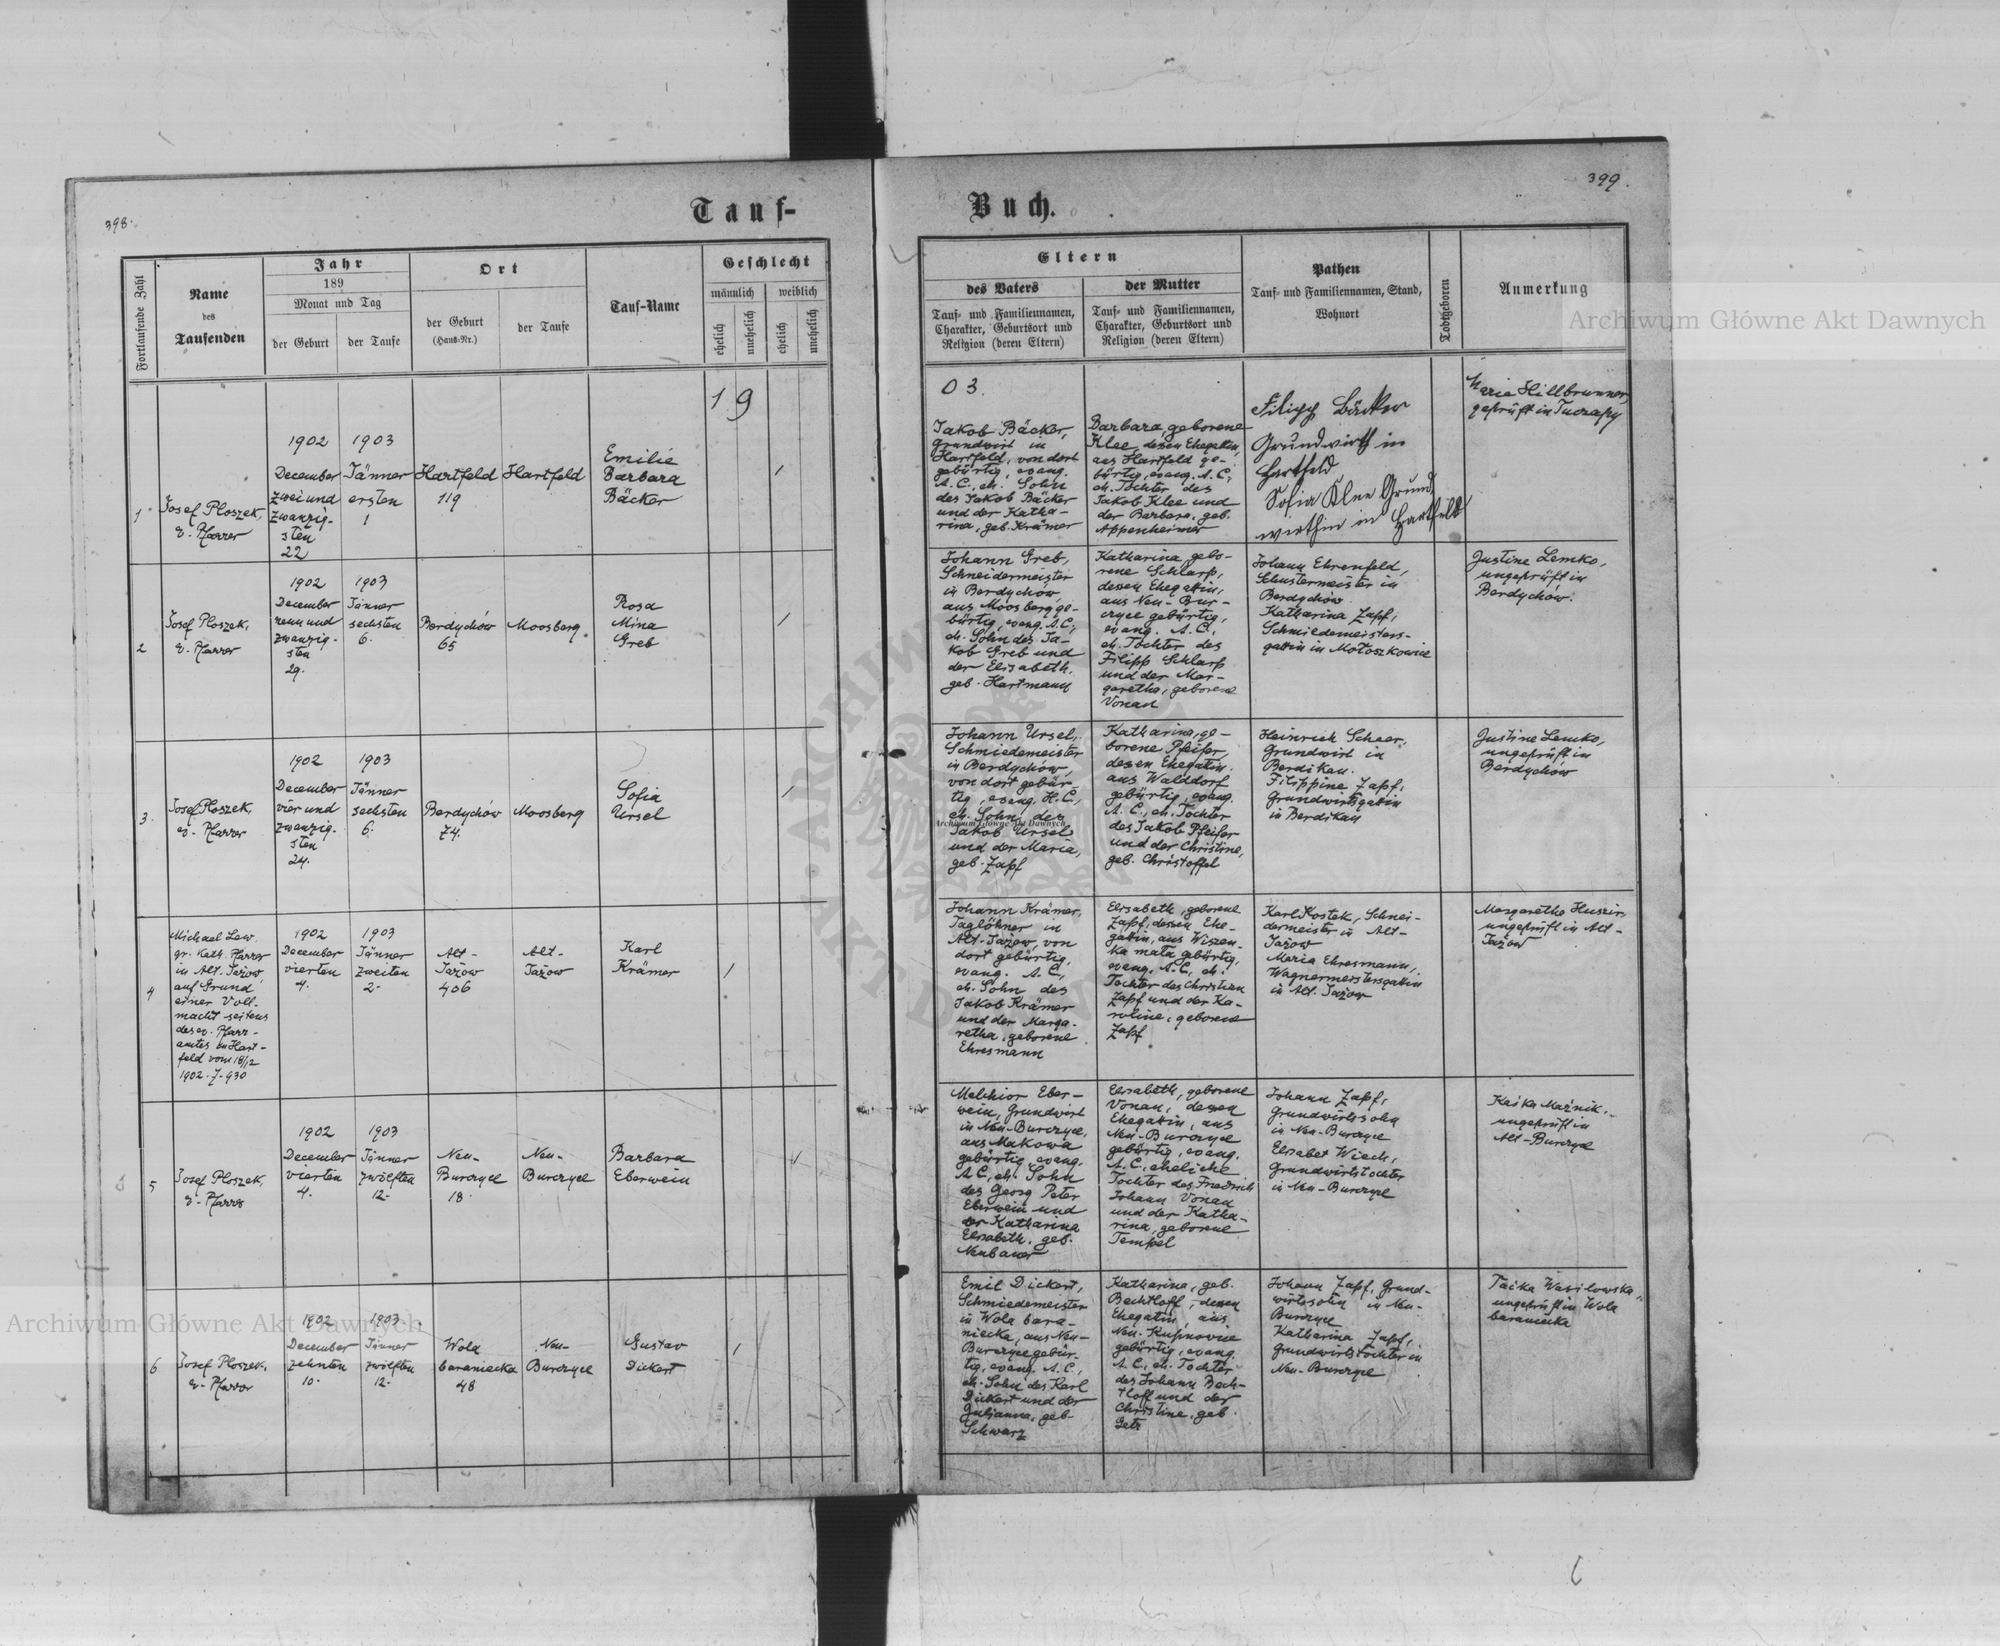 398.
399.
Tauf-
Buch.
Fortlaufende Zahl
Name
des
Taufenden
Jahr
189
Monat und Tag
der Geburt
der Taufe
Ort
der Geburt
(Haus-Nr.)
der Taufe
Tauf-Name
Geschlecht
männlich
weiblich
ehelich
unehelich
ehelich
unehelich
Eltern
des Vaters
Tauf- und Familiennamen,
Charakter, Geburtsort und
Religion (deren Eltern)
der Mutter
Tauf- und Familiennamen,
Charakter, Geburtsort und
Religion (deren Eltern)
Pathen
Tauf- und Familiennamen, Stand,
Wohnort
Todtgeboren
Anmerkung
19
03.
1
Josef Ploszek,
ev. Pfarrer
1902
December
zweiund
zwanzig-
sten
22
1903
Jänner
ersten
1
Hartfeld
119
Hartfeld
Emilie
Barbara
Bäcker
1
Jakob Bäcker,
Grundwirt in
Hartfeld, von dort
gebürtig, evang.
A. C., eh. Sohn
des Jakob Bäcker
und der Katha-
rina, geb. Krämer
Barbara, geborene
Klee, dessen Ehegattin,
aus Hartfeld ge-
bürtig, evang. A. C.,
eh. Tochter des
Jakob Klee und
der Barbara, geb.
Appenheimer
Filipp Bäcker
Grundwirth in
Hartfeld
Sofia Klee Grund
wirthin in Hartfeld
Maria Hillbrunner,
geprüft in Tuczapy
2
Josef Ploszek,
ev. Pfarrer
1902
December
neunund
zwanzig-
sten
29.
1903
Jänner
sechsten
6.
Berdychów
65
Moosberg
Rosa
Mina
Greb
1
Johann Greb,
Schneidermeister
in Berdychów,
aus Moosberg ge-
bürtig, evang. A. C.,
eh. Sohn des Ja-
kob Greb und
der Elisabeth,
geb. Hartmann
Katharina, gebo-
rene Schlarp,
dessen Ehegattin,
aus Neu-Bur-
czyce gebürtig,
evang. A. C.,
eh. Tochter des
Filipp Schlarp
und der Mar-
garetha, geborene
Vonau
Johann Ehrenfeld,
Schustermeister in
Berdychów.
Katharina Zapf,
Schmiedemeisters-
gattin in Mołoszkowice
Justine Lemko,
ungeprüft in
Berdychów.
3.
Josef Ploszek,
ev. Pfarrer
1902
December
vier und
zwanzig-
sten
24.
1903
Jänner
sechsten
6.
Berdychów
74.
Moosberg
Sofia
Ursel
1
Johann Ursel,
Schmiedemeister
in Berdychów,
von dort gebür-
tig, evang. H. C.,
eh. Sohn des
Jakob Ursel
und der Maria,
geb. Zapf
Katharina, ge-
borene Pfeifer,
dessen Ehegattin,
aus Walddorf
gebürtig, evang.
A. C., eh. Tochter
des Jakob Pfeifer
und der Christine,
geb. Christoffel
Heinrich Scheer,
Grundwirt in
Berdikau.
Filippine Zapf,
Grundwirtsgattin
in Berdikau
Justine Lemko,
ungeprüft in
Berdychów
4
Michael Lew,
gr. kath. Pfarrer
in Alt-Jażow,
auf Grund
einer Voll-
macht seitens
des ev. Pfarr-
amtes in Hart-
feld vom 18/12
1902. Z. 930
1902
December
vierten
4.
1903
Jänner
zweiten
2.
Alt-
Jażow
406
Alt-
Jażow
Karl
Krämer
1
Johann Krämer,
Taglöhner in
Alt-Jażow, von
dort gebürtig,
evang. A. C.,
eh. Sohn des
Jakob Krämer
und der Marga-
retha, geborene
Ehresmann
Elisabeth, geborene
Zapf, dessen Ehe-
gattin, aus Wiszen-
ka mała gebürtig,
evang. A. C., eh.
Tochter des Christian
Zapf und der Ka-
roline, geborene
Zapf
Karl Kostek, Schnei-
dermeister in Alt-
Jażow
Maria Ehresmann,
Wagnermeistersgattin
in Alt-Jażow
Margarethe
ungeprüft in Alt-
Jażow
5
Josef Ploszek,
ev. Pfarrer
1902
December
vierten
4.
1903
Jänner
zwölften
12.
Neu-
Burczyce
18.
Neu-
Burczyce
Barbara
Eberwein
1
Melchior Eber-
wein, Grundwirt
in Neu-Burczyce,
aus Makowa
gebürtig, evang.
A. C., eh. Sohn
des Georg Peter
Eberwein und
der Katharina
Elisabeth, geb.
Neubauer
Elisabeth, geborene
Vonau, dessen
Ehegattin, aus
Neu-Burczyce
gebürtig, evang.
A. C., eheliche
Tochter des Friedrich
Johann Vonau
und der Katha-
rina, geborene
Tempel
Johann Zapf,
Grundwirtssohn
in Neu-Burczyce
Elisabet Wiech,
Grundwirtstochter
in Neu-Burczyce
Kaśka Maźnik,
ungeprüft in
Alt-Burczyce
6
Josef Ploszek,
ev. Pfarrer
1902
December
zehnten
10.
1903.
Jänner
zwölften
12.
Wola
baraniecka
48
Neu-
Burczyce
Gustav
Dickert
1
Emil Dickert,
Schmiedemeister
in Wola bara-
niecka, aus Neu-
Burczyce gebür-
tig, evang. A. C.,
eh. Sohn des Karl
Dickert und der
Julianna, geb.
Schwarz
Katharina, geb.
Bechtloff, dessen
Ehegattin, aus
Neu-Kupnovice
gebürtig, evang.
A. C., eh. Tochter
des Johann Bech-
tloff und der
Christine, geb.
Getz
Johann Zapf, Grund-
wirtssohn in Neu-
Burczyce
Katharina Zapf,
Grundwirtstochter in
Neu-Burczyce
Taćka Wasilowska,
ungeprüft in Wola
baraniecka
Archiwum Główne Akt Dawnych
Archiwum Główne Akt Dawnych
Archiwum Główne Akt Dawnych